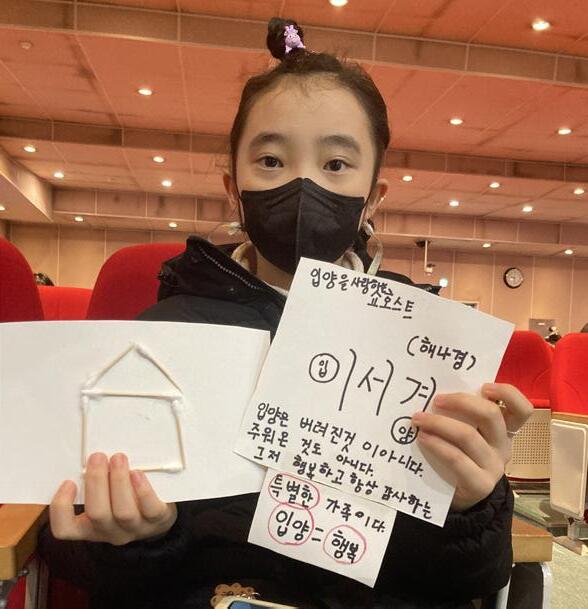 입양을 사랑하는
요오스트
(해나경)
이서경
입
양
입양은 버려진것 이아니다.
주워온 것도 아니다.
그저 행복하고 항상 감사하는
특별한 가족이다.
입양=행복